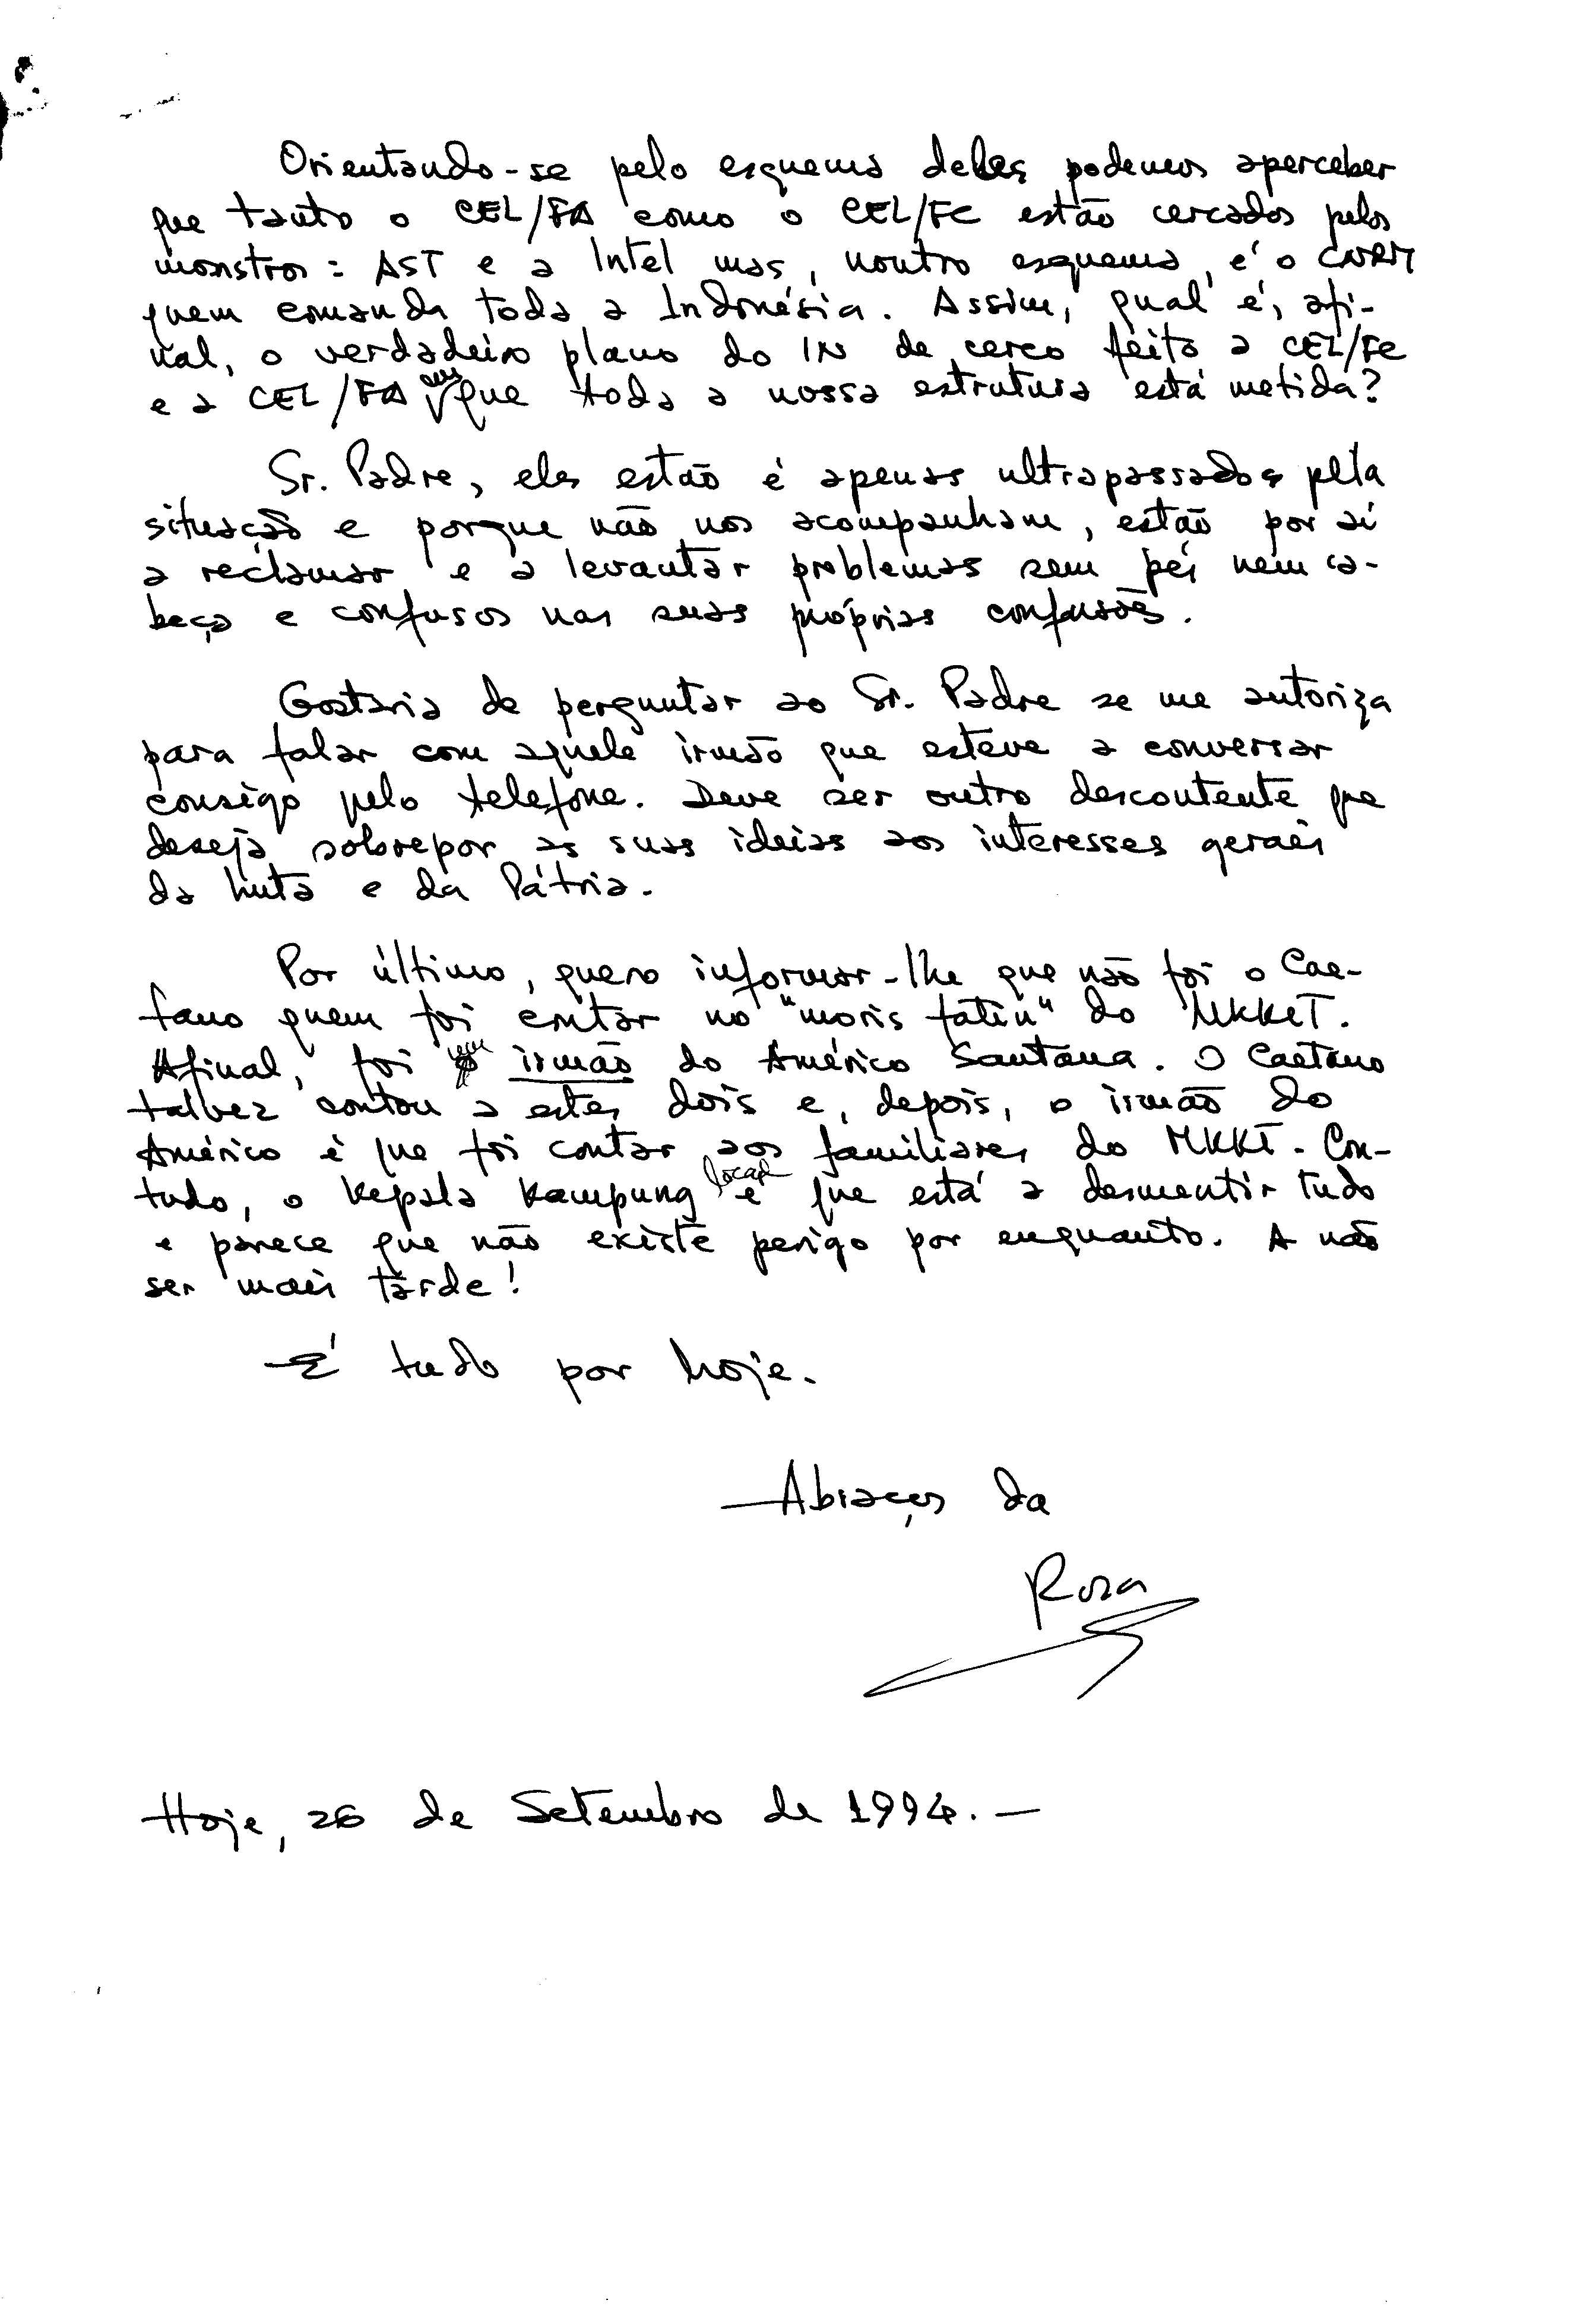 Orientando-se pelo esquema deles podemos aperceber
que tanto o CEL/FA como o CEL/FC estão cercados pelos
monstros: AST e a Intel mas, noutro esquema, é o CNRM
quem comanda toda a Indonésia. Assim, qual é, afi-
nal, o verdadeiro plano do IN de cerco feito a CEL/FC
e a CEL/FA em que toda a nossa estrutura está metida?
Sr. Padre, eles estão é apenas ultrapassados pela
situação e porque não nos acompanham, estão por aí
a reclamar e a levantar problemas sem pés nem ca-
beça e confusos nas suas próprias confusões.
Gostaria de perguntar ao Sr. Padre se me autoriza
para falar com aquele irmão que esteve a conversar
consigo pelo telefone. Deve ser outro descontente que
deseja sobrepor as suas ideias aos interesses gerais
da luta e da Pátria.
Por último, quero informar-lhe que não foi o Cae-
tano quem foi contar no "moris fatin" do MKKT.
Afinal, foi um irmão do Américo Santana. O Caetano
talvez contou a estes dois e, depois, o irmão do
Américo é que foi contar aos familiares do MKKT. Con-
tudo, o Kepala Kampung local é que está a desmentir tudo
e parece que não existe perigo por enquanto. A não
ser mais tarde!
É tudo por hoje.
Abraços da
Rosa
Hoje, 26 de Setembro de 1994.—